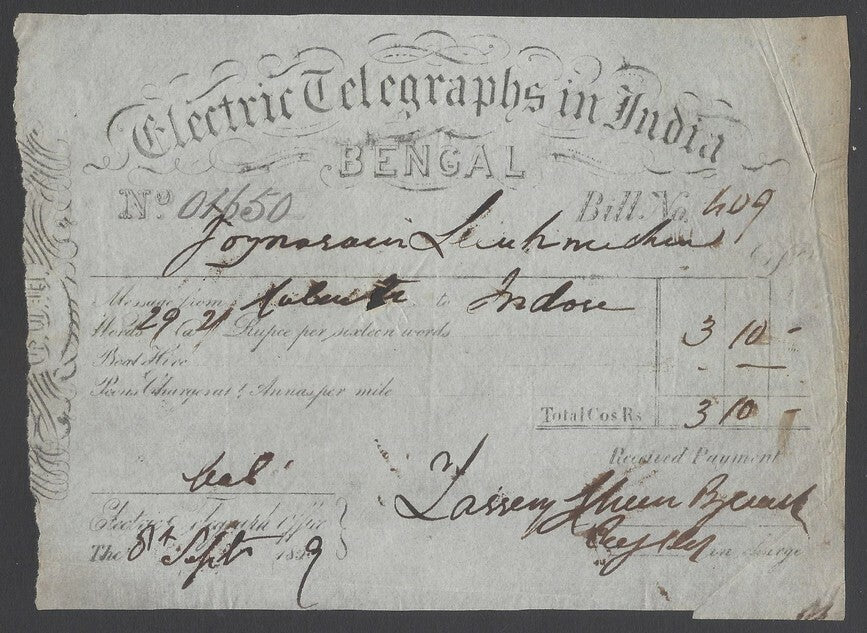 Electric Telegraphs in India
BENGAL
No. 01650 Bill. No. 409
Message from to Indore
Words 29 @ 2 Rupee per sixteen words 3 10 -
Boat Hire - -
Peons Charge at 1 Annas per mile
Total Cos Rs 3 10 -
Received Payment
Cal
Electric Telegraph Office
The 8th Sept 1859 in charge